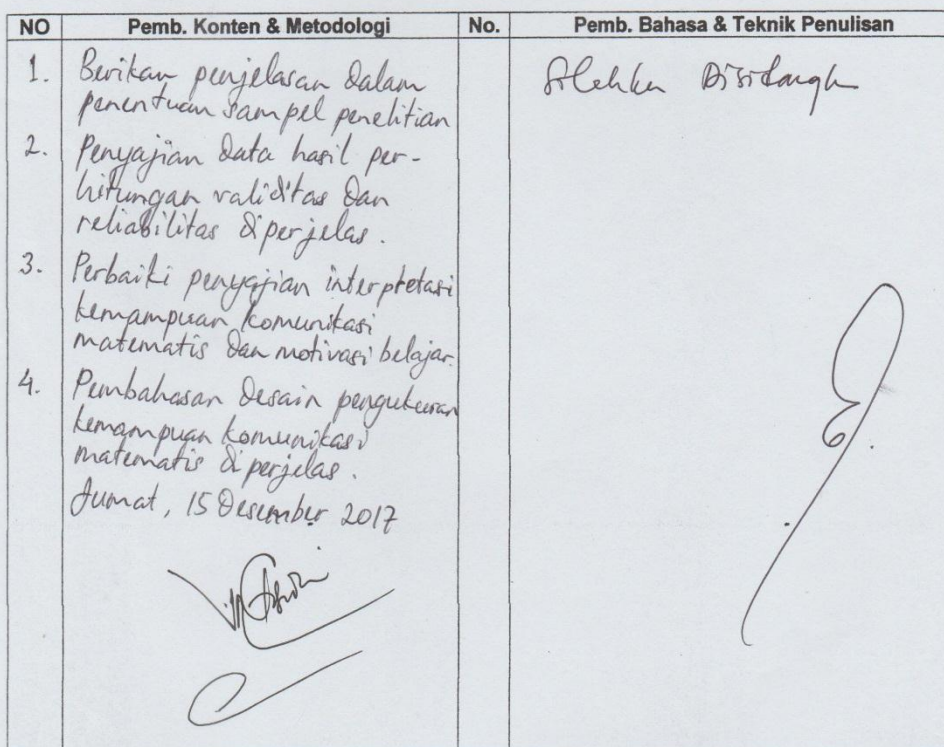 NO Pemb. Konten & Metodologi No. Pemb. Bahasa & Teknik Penulisan
1. Berikan penjelasan dalam
penentuan sampel penelitian
2. Penyajian data hasil per-
hitungan validitas dan
reliabilitas diperjelas.
3. Perbaiki penyajian interpretasi
kemampuan komunikasi
matematis dan motivasi belajar.
4. Pembahasan desain pengukuran
kemampuan komunikasi
matematis diperjelas.
Jumat, 15 Desember 2017